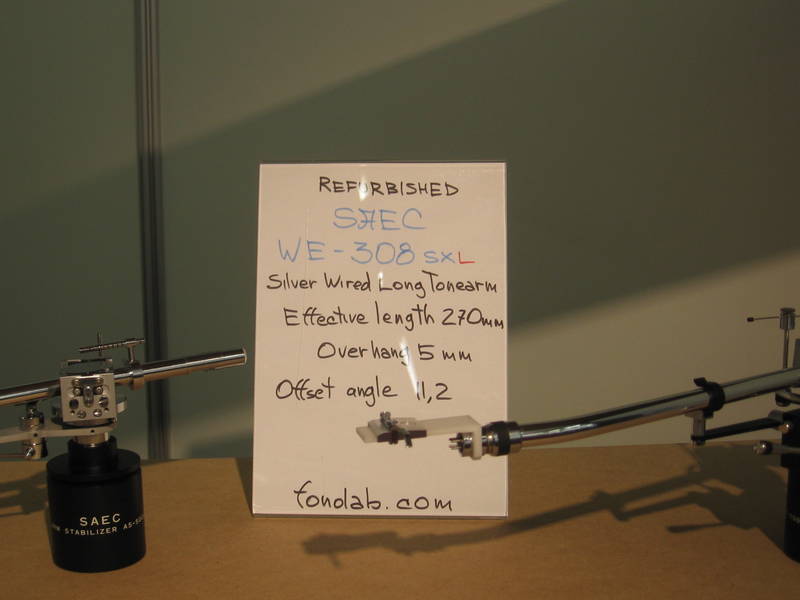 REFURBISHED
SAEC
WE-308 SXL
Silver Wired Long Tonearm
Effective length 270mm
Overhang 5 mm
Offset angle 11,2
fonolab.com
SAEC
STABILIZER